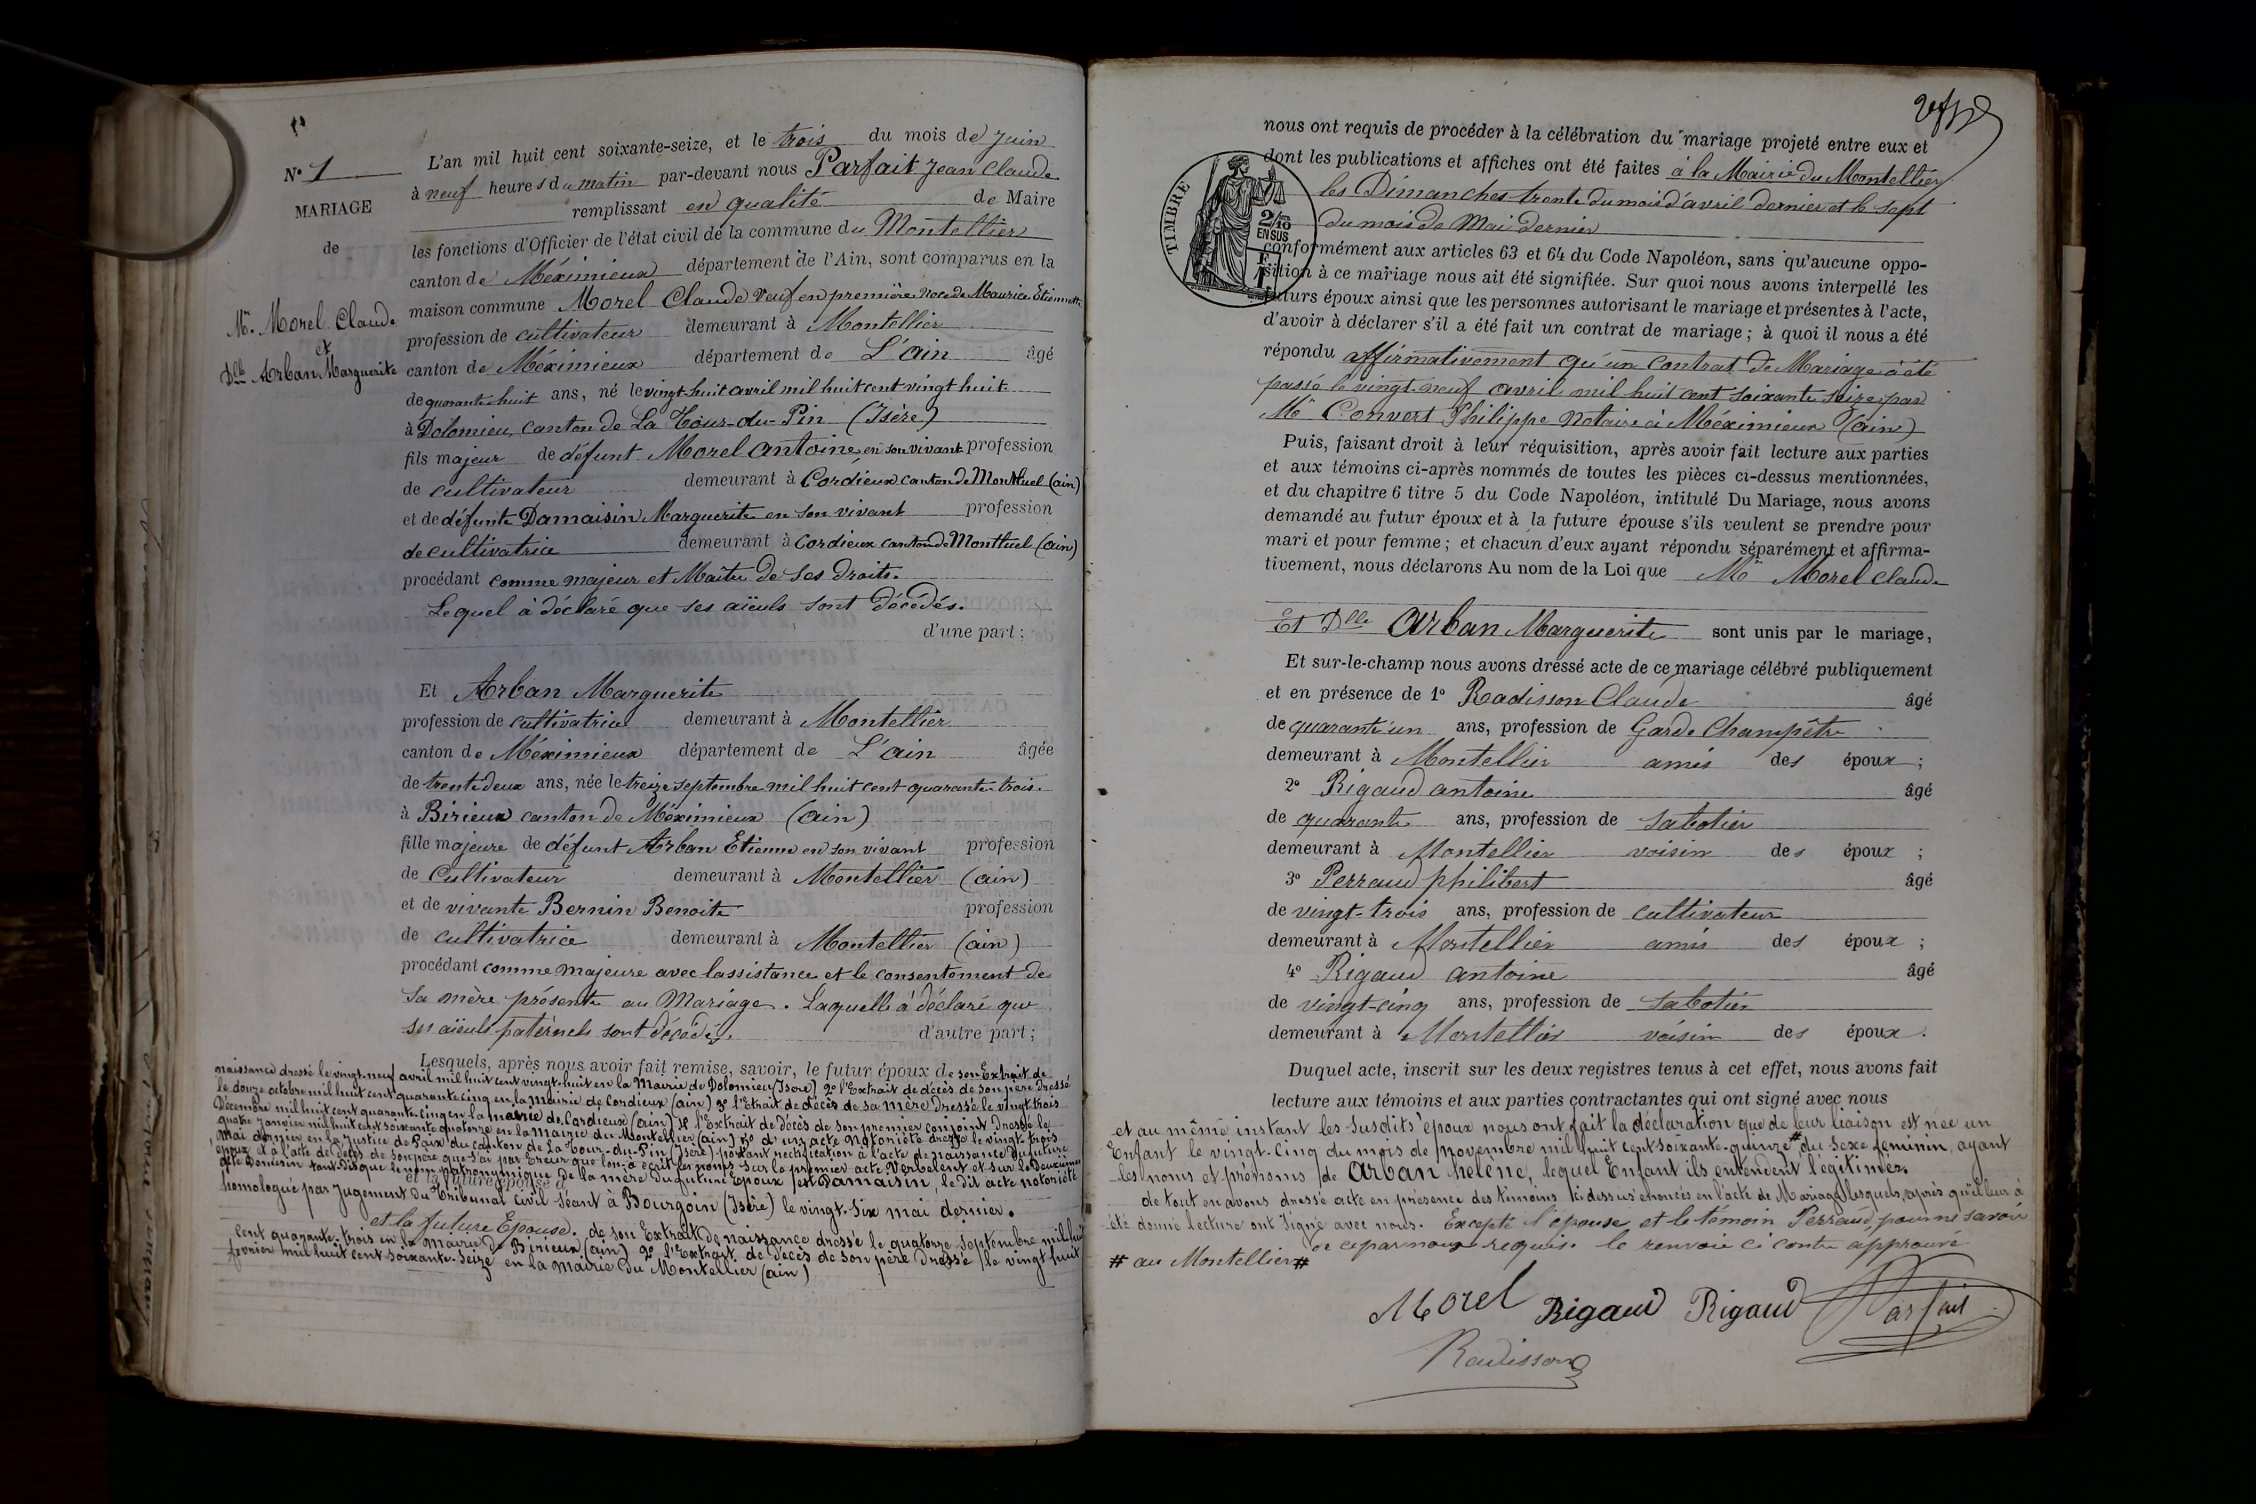 N° 1
MARIAGE
de
Mr. Morel Claude
et
Dlle Arban Marguerite
L'an mil huit cent soixante-seize, et le trois du mois de Juin
à neuf heures du matin par-devant nous Parfait Jean Claude
remplissant en qualité de Maire
les fonctions d'Officier de l'état civil de la commune du Montellier
canton de Méximieux département de l'Ain, sont comparus en la
maison commune Morel Claude veuf en première noce de Maurice Etiennette
profession de cultivateur demeurant à Montellier
canton de Méximieux département de L'ain âgé
de quarante huit ans, né le vingt huit avril mil huit cent vingt huit
à Dolomieu, canton de La Tour-du-Pin (Isère)
fils majeur de défunt Morel Antoine en son vivant profession
de cultivateur demeurant à Cordieux canton de Montluel (ain)
et de défunte Damaisin Marguerite en son vivant profession
de cultivatrice demeurant à Cordieux canton de Montluel (ain)
procédant comme majeur et Maître de ses droits.
Lequel à déclaré que ses aïeuls sont décédés.
d'une part;
Et Arban Marguerite
profession de cultivatrice demeurant à Montellier
canton de Méximieux département de L'ain âgée
de trente deux ans, née le treize septembre mil huit cent quarante-trois.
à Birieux canton de Méximieux (ain)
fille majeure de défunt Arban Etienne en son vivant profession
de Cultivateur demeurant à Montellier (ain)
et de vivante Bernin Benoite profession
de cultivatrice demeurant à Montellier (ain)
procédant comme majeure avec lassistance et le consentement de
sa mère présente au Mariage. Laquelle à déclaré que
ses aïeuls paternels sont décédés. d'autre part;
Lesquels, après nous avoir fait remise, savoir, le futur époux de son Extrait de
naissance dressé le vingt-neuf avril mil huit cent vingt-huit en la Mairie de Dolomieu (Isere) 2° l'Extrait de décès de son père dressé
le douze octobre mil huit cent quarante cinq en la mairie de Cordieux (ain) 3° l'Etrait de décès de sa mère dressé le vingt trois
Décembre mil huit cent quarante-cinq en la mairie de Cordieux (ain) 4° l'Extrait de décès de son premier conjoint dressé le
quatre janvier mil huit cent soixante quatorze en la mairie du Montellier (ain) 5° d'un acte notoriété dressé le vingt-trois
mai dernier en la justice de Paix du canton de La Tour-du-Pin (Isère) portant rectification à l'acte de naissance du future
époux et à l'acte de décès de son père que s'ai par Erreur que lon à écrit les noms sur le premier acte Verbelent et sur le deuxième
acte Domesin tant-disque le nom patronymique de la mère du future Epoux est Damaisin, le dit acte notoriété
et la future épouse d
homologué par jugement du Tribunal civil séant à Bourgoin (Isère) le vingt-six mai dernier.
et la future Epouse. de son Extrait de naissance dressé le quatorze septembre mil huit
cent quarante-trois en la mairie de Birieux (ain) 2° l'Extrait de décès de son père dressé le vingt huit
fevrier mil huit cent soixante-seize en la mairie du Montellier (ain)
TIMBRE
2/10
EN SUS
nous ont requis de procéder à la célébration du mariage projeté entre eux et
dont les publications et affiches ont été faites à la Mairie du Montellier
les Dimanches trente du mois d'avril dernier et le sept
du mois de Mai dernier
conformément aux articles 63 et 64 du Code Napoléon, sans qu'aucune oppo-
sition à ce mariage nous ait été signifiée. Sur quoi nous avons interpellé les
futurs époux ainsi que les personnes autorisant le mariage et présentes à l'acte,
d'avoir à déclarer s'il a été fait un contrat de mariage; à quoi il nous a été
répondu affirmativement qu'un contrat de Mariage à été
passé le vingt-neuf avril mil huit cent soixante seize par
Me Convert Philippe Notaire à Méximieux (ain)
Puis, faisant droit à leur réquisition, après avoir fait lecture aux parties
et aux témoins ci-après nommés de toutes les pièces ci-dessus mentionnées,
et du chapitre 6 titre 5 du Code Napoléon, intitulé Du Mariage, nous avons
demandé au futur époux et à la future épouse s'ils veulent se prendre pour
mari et pour femme; et chacun d'eux ayant répondu séparément et affirma-
tivement, nous déclarons Au nom de la Loi que Mr Morel Claude
Et Dlle Arban Marguerite sont unis par le mariage,
Et sur-le-champ nous avons dressé acte de ce mariage célébré publiquement
et en présence de 1° Radisson Claude âgé
de quarant'un ans, profession de Garde Champêtre
demeurant à Montellier amis des époux;
2° Rigaud antoine âgé
de quarante ans, profession de sabotier
demeurant à Montellier voisin des époux;
3° Perraud philibert âgé
de vingt-trois ans, profession de cultivateur
demeurant à Montellier amis des époux;
4° Rigaud antoine âgé
de vingt-cinq ans, profession de sabotier
demeurant à Montellier voisin des époux.
Duquel acte, inscrit sur les deux registres tenus à cet effet, nous avons fait
lecture aux témoins et aux parties contractantes qui ont signé avec nous
et au même instant les susdits époux nous ont fait la déclaration que de leur liaison est née un
Enfant le vingt-cinq du mois de Novembre mil huit cent soixante-quinze # du sexe féminin, ayant
les noms et prénoms de Arban hélène, lequel Enfant ils entendent légitimer.
de tout en avons dressé acte en présence des témoins ci dessus énoncés en l'acte de Mariage lesquels, après qu'il leur à
été donné lecture ont signé avec nous. Excepté l'épouse et le témoin Perraud, pour ne savoir
de ce par nous requis. le renvoie ci contre approuvé
# au Montellier #
Morel Rigaud Rigaud Parfait
Radisson